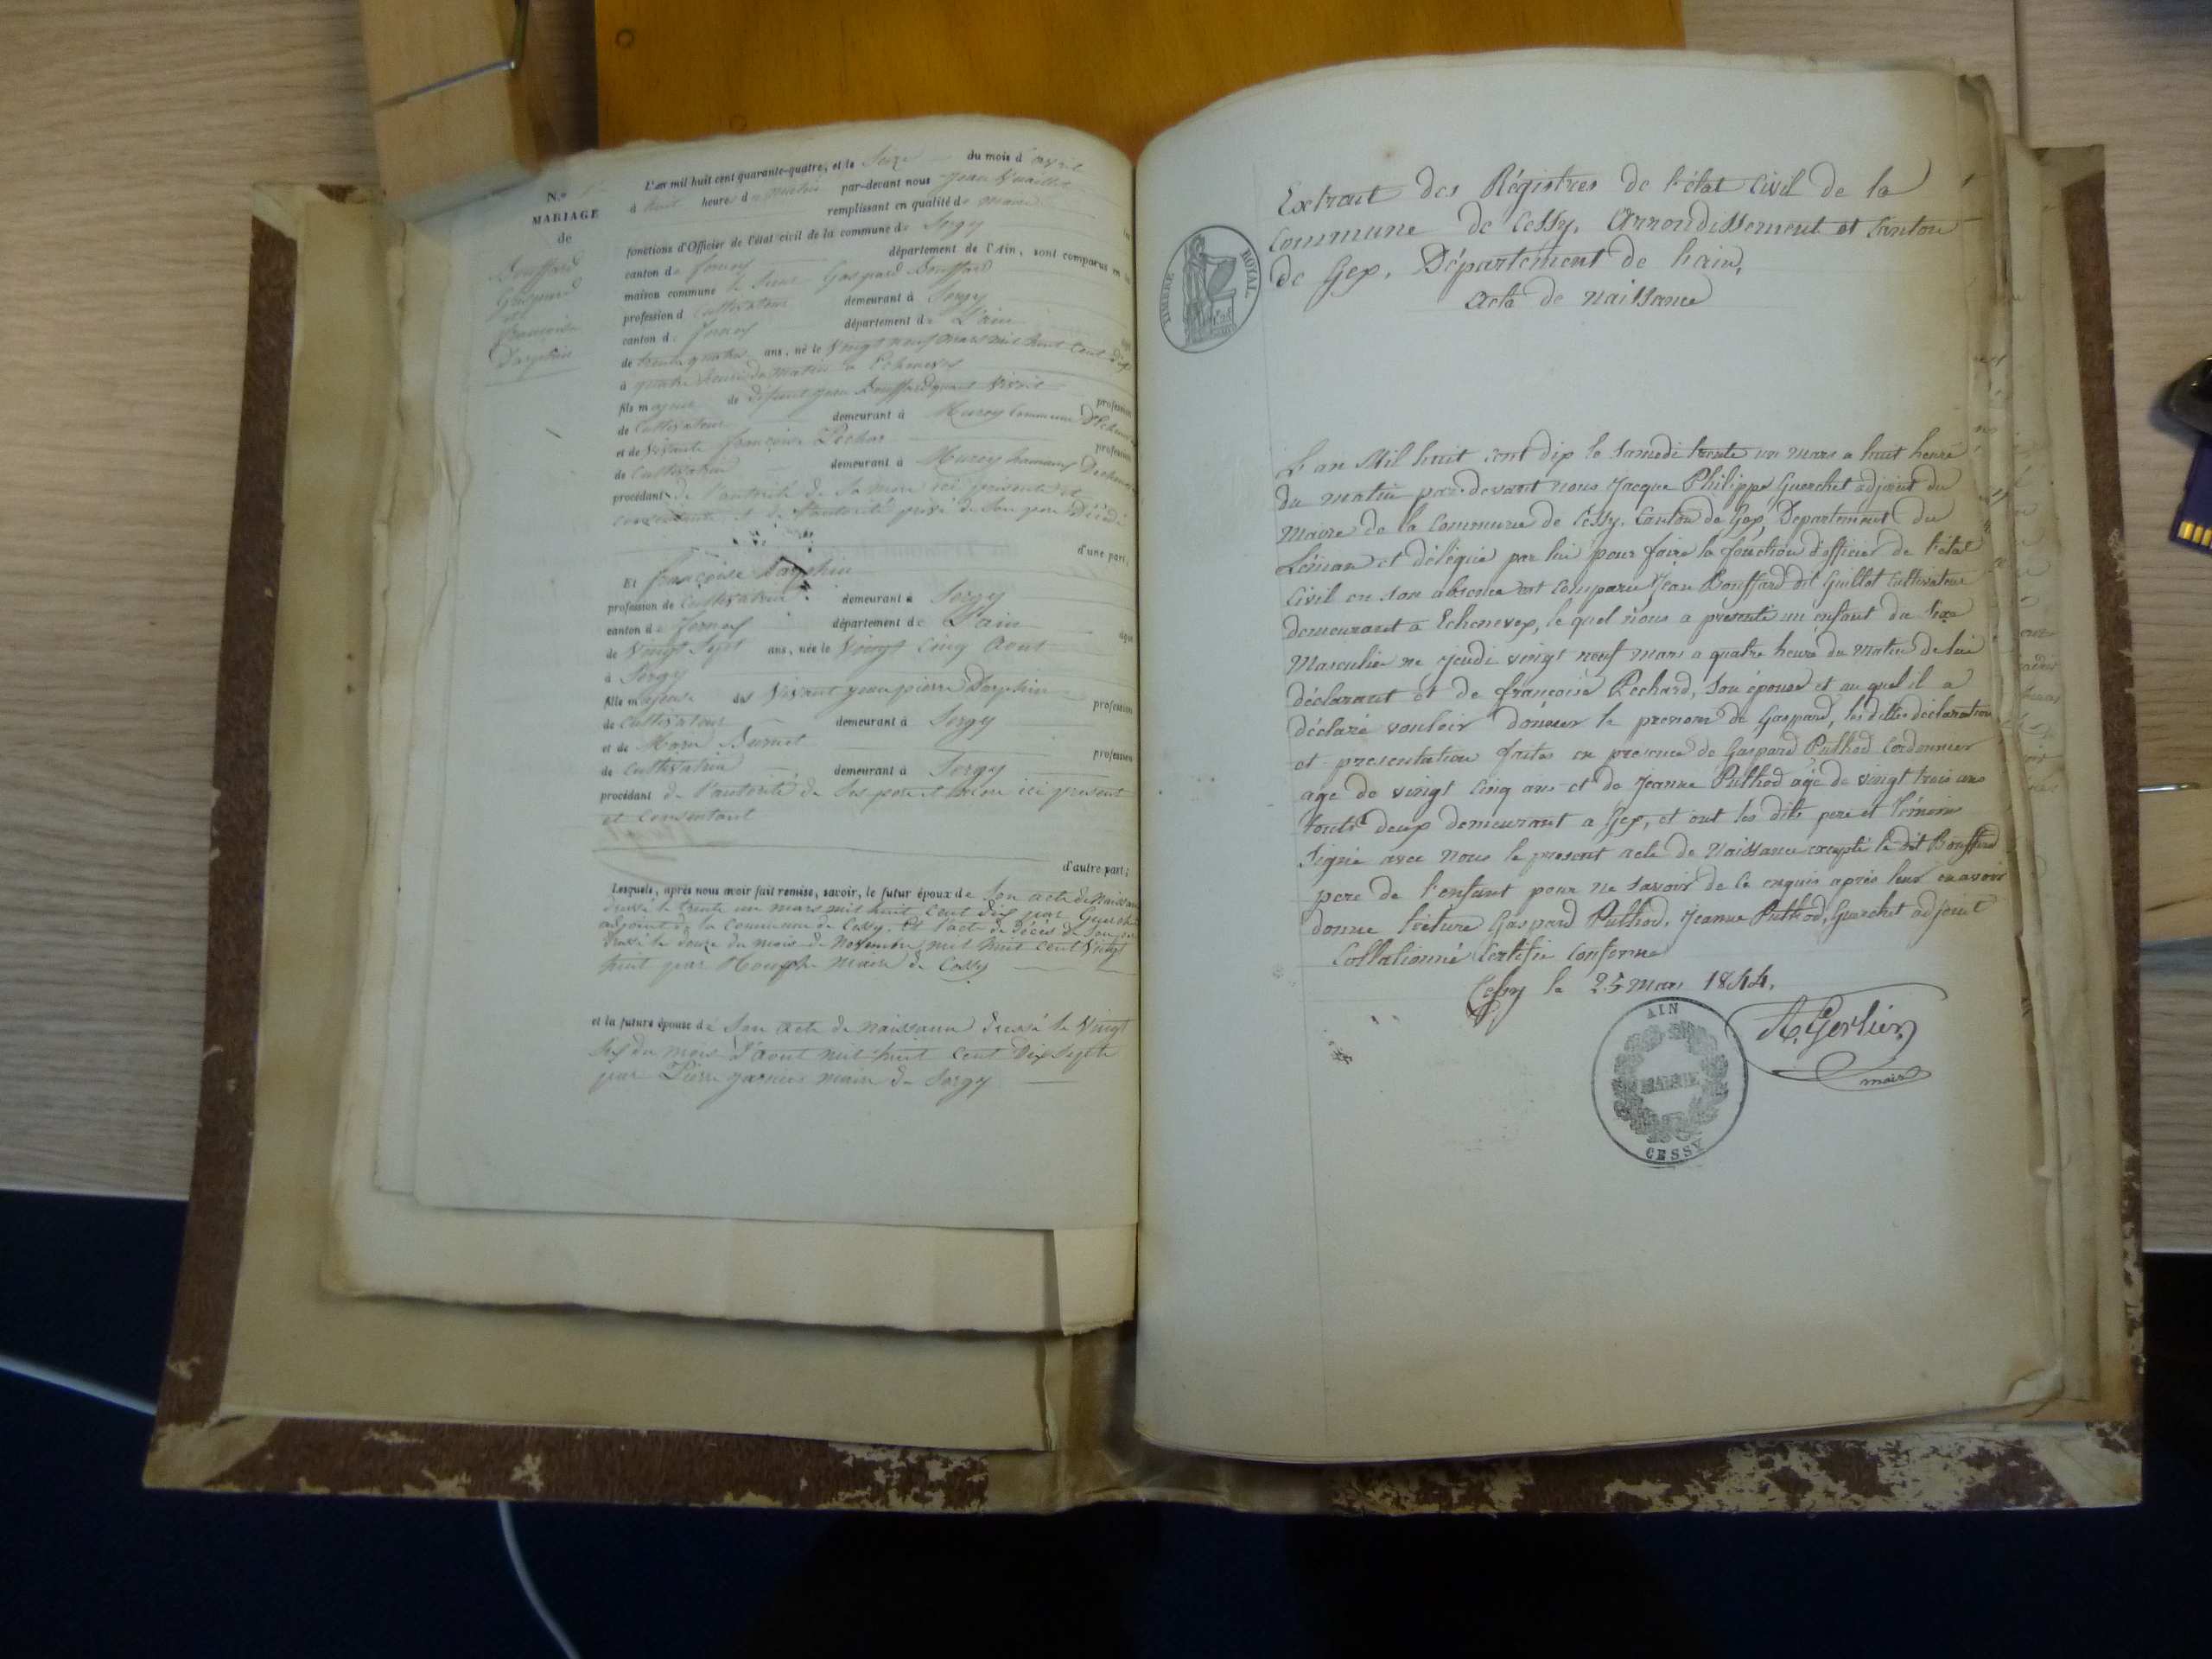 N.o
MARIAGE
de
Bouffard
Gaspard
et
françoise
Dayphin
L'an mil huit cent quarante-quatre, et le Seize du mois d'avril
à huit heures du matin par-devant nous Jean Vuaillet
remplissant en qualité de maire les
fonctions d'Officier de l'état civil de la commune de Sergy
canton de ferney département de l'Ain, sont comparus en la
maison commune le Sieur Gaspard Bouffard
profession de Cultivateur demeurant à Sergy
canton de ferney département de L'ain
de trente quatre ans, né le Vingt neuf mars mil huit cent dix
à quatre heures du matin à Echenevex
fils majeur de défunt Jean Bouffard quand Vivait profession
de Cultivateur demeurant à Murcy Commune D'Echenevex
et de Vivante françoise Pechar profession
de Cultivatrice demeurant à Murcy hameau Dechenevex
procédant de l'autorité de Sa mère ici présente et
consentante et de l'autorité privé de Son père Décédé
d'une part,
Et françoise Dayphin
profession de Cultivatrice demeurant à Sergy
canton de ferney département de L'ain âgée
de Vingt Sept ans, née le Vingt Cinq Aout
à Sergy
fille majeure des Vivant jean pierre Dayphin profession
de Cultivateur demeurant à Sergy
et de Marie profession
de Cultivatrice demeurant à Sergy
procédant de l'autorité de Ses père et mère ici présent
et Consentant
d'autre part;
Lesquels, après nous avoir fait remise, savoir, le futur époux de Son acte de Naissance
dressé le trente un mars mil huit cent dix par Guerchet
adjoint de la Commune de Cessy. Et l'acte de décès de Son père
dressé le douze du mois de Novembre mil huit cent Vingt
huit par maire de Cessy
et la future épouse de Son acte de naissance dressé le Vingt
Six du mois d'aout mil huit cent dix Sept
par Pierre maire de Sergy
TIMBRE ROYAL
Extrait des Régistres de l'état Civil de la
Commune de Cessy. Arrondissement et Canton
de Gex. Département de l'ain,
Acte de Naissance
L'an Mil huit cent dix le Samedi trente un mars a huit heure
du matin par-devant nous Jacque Philippe Guerchet adjoint du
Maire de la Commune de Cessy. Canton de Gex, Departement du
Léman et délégué par lui pour faire la fonction d'officier de l'état
Civil en Son absence est Comparu Jean Bouffard dit Guillot Cultivateur
demeurant a Echenevex, le quel nous a presenté un enfant du Sexe
Masculin ne Jeudi vingt neuf mars a quatre heure du Matin de lui
déclarant et de françoise Pechard, Son épouse et au quel il a
déclaré vouloir donner le prenom de Gaspard, les dittes déclaration
et presentation faites en presence de Gaspard Puthod Cordonnier
age de vingt Cinq ans et de Jeanne Puthod age de vingt trois ans
touts deux demeurant a Gex, et ont les dits pere et témoins
Signé avec nous le present acte de Naissance excepté le dit Bouffard
pere de l'enfant pour ne Savoir de ce enquis après leur en avoir
donne lecture Gaspard Puthod, Jeanne Puthod, Guerchet adjoint
Collationné Certifié Conforme
Cessy le 25 mars 1844.
A. Gerlier
maire
AIN
MAIRIE
CESSY